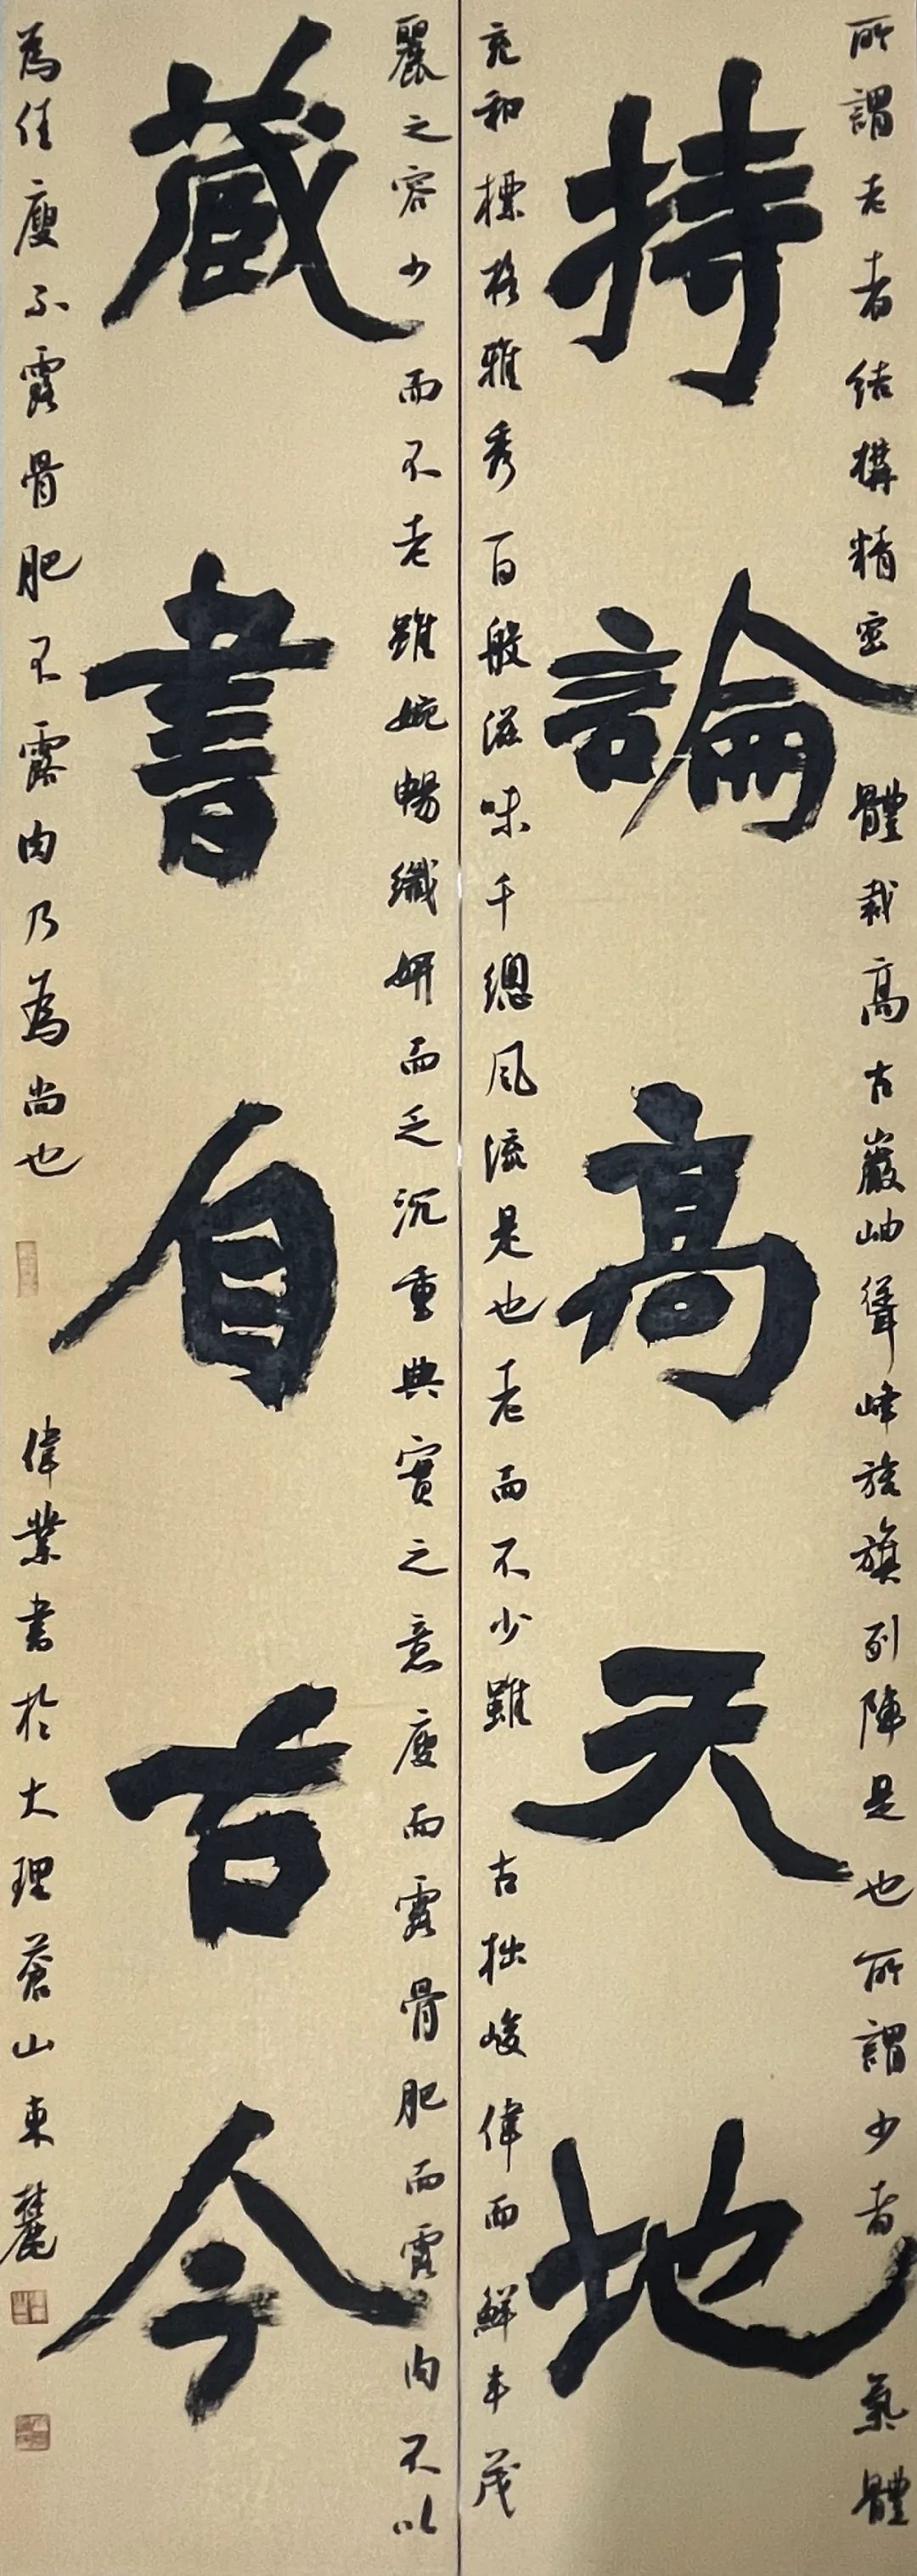 所謂老者結構精密體裁高古巖岫聳峰旌旗列陣是也所謂少者氣體
持論高天地
充和標格雅秀百般滋味千總風流是也老而不少雖古拙峻偉而鮮丰茂
麗之容少而不老雖婉暢纖妍而乏沉重典實之意瘦而露骨肥而露肉不以
藏書自古今
為佳瘦不露骨肥不露肉乃為尚也 偉業書於大理蒼山東麓